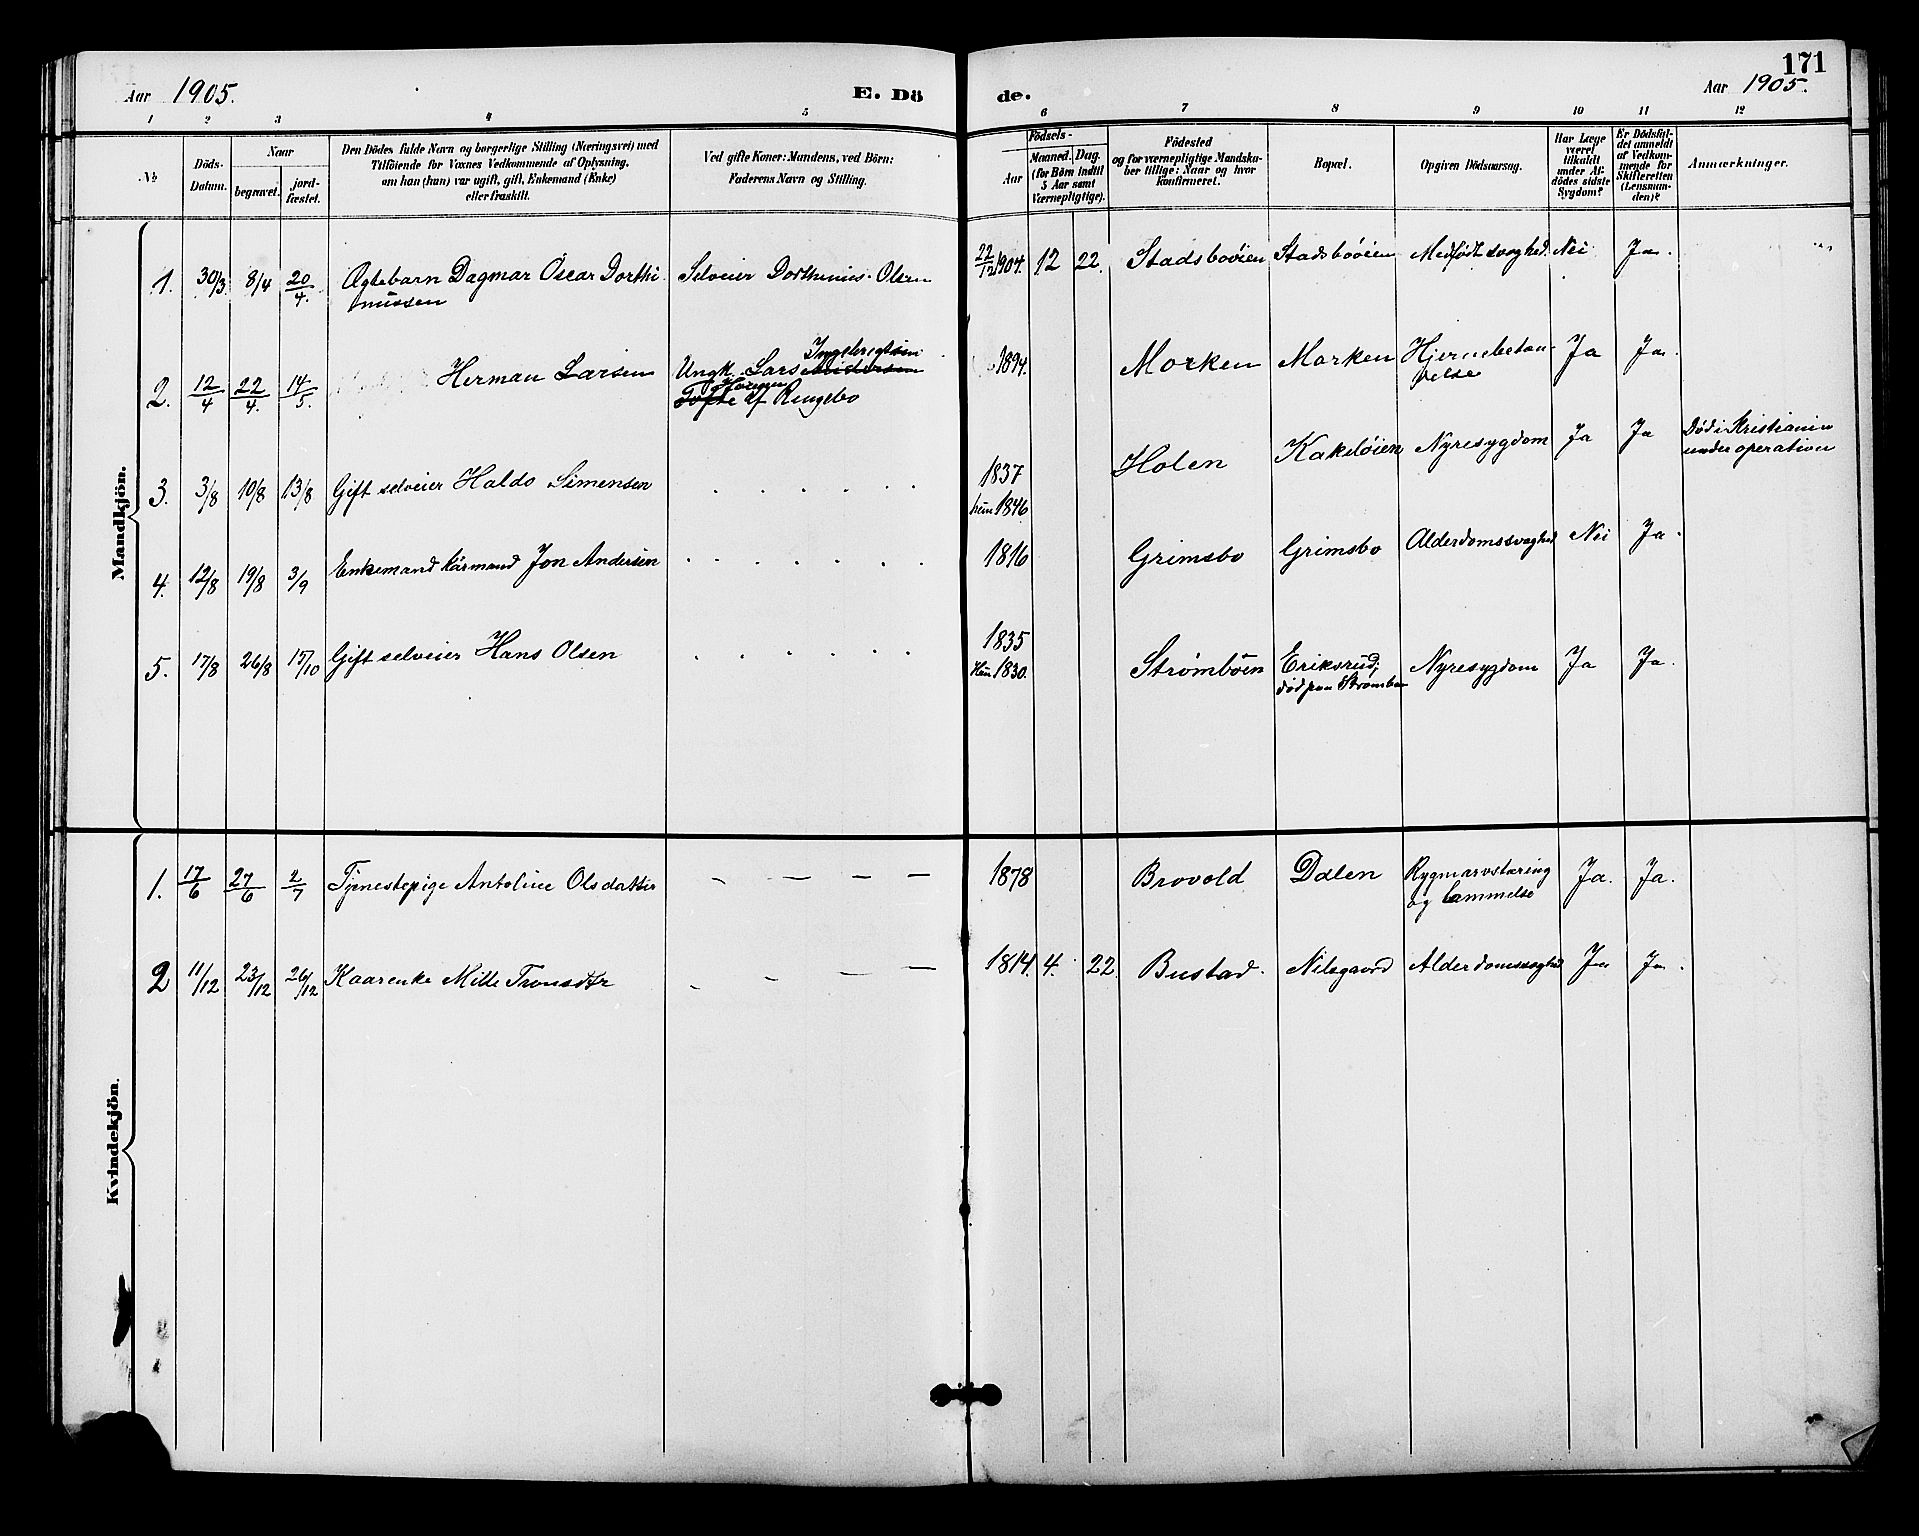 171
Aar 1905.
E. Dö
de.
Aar 1905.
1 2 3 4 5 6 7 8 9 10 11 12
No
Döds-
Datum.
Naar
begravet.
jord-
fæstet.
Den Dödes fulde Navn og borgerlige Stilling (Næringsvei) med
Tilföiende for Voxnes Vedkommende af Oplysning,
om han (hun) var ugift, gift, Enkemand (Enke)
eller fraskilt.
Ved gifte Koner: Mandens, ved Börn:
Faderens Navn og Stilling.
Födsels-
Aar
Maaned. Dag.
(for Börn indtil
5 Aar samt
Værnepligtige).
Födested
og for værnepligtige Mandska-
ber tillige: Naar og hvor
Konfirmeret.
Bopæl.
Opgiven Dödsaarsag.
Har Læge
været
tilkaldt
under Af-
dödes sidste
Sygdom?
Er Dödsfal-
det anmeldt
af Vedkom-
mende for
Skifteretten
(Lensman-
den)?
Anmærkninger.
Mandkjön.
1. 30/3 8/4 20/4. Ægtebarn Dagmar Oscar Dorthi- Selveier Dorthinius Olsen 22/12 1904. 12 22. Stadsbøien Stadsbøien Medfødt svaghed. Nei Ja.
nussen
Ingebrigtsen
2. 12/4 22/4. 14/5. Herman Larsen Ungk. Lars 1894. Morken Morken Hjernebetæn- Ja Ja.
Tofte af Ringebo
delse
3. 3/8 10/8 13/8 Gift selveier Haldo Simensen 1837 Holen Kakeløien Nyresygdom Ja Ja Død i Kristiania
hun 1846
under operation
4. 12/8 19/8 3/9 Enkemand kårmand Jon Andersen 1816 Grimsbo Grimsbo Alderdomssvaghed Nei Ja.
5. 17/8 26/8 15/10 Gift selveier Hans Olsen 1835 Strømbøen Eriksrud; Nyresygdom Ja Ja.
Hun 1830.
død paa Strømbøen
Kvindekjön.
1. 17/6 27/6 2/7 Tjenestepige Antoline Olsdatter 1878 Brovold Dalen Rygmarvstæring Ja. Ja.
og lammelse
2 11/12 23/12 26/12 Kaarenke Mille Tronsdtr 1814. 4. 22. Bustad. Nilsgaard Alderdomssvaghed Ja Ja.